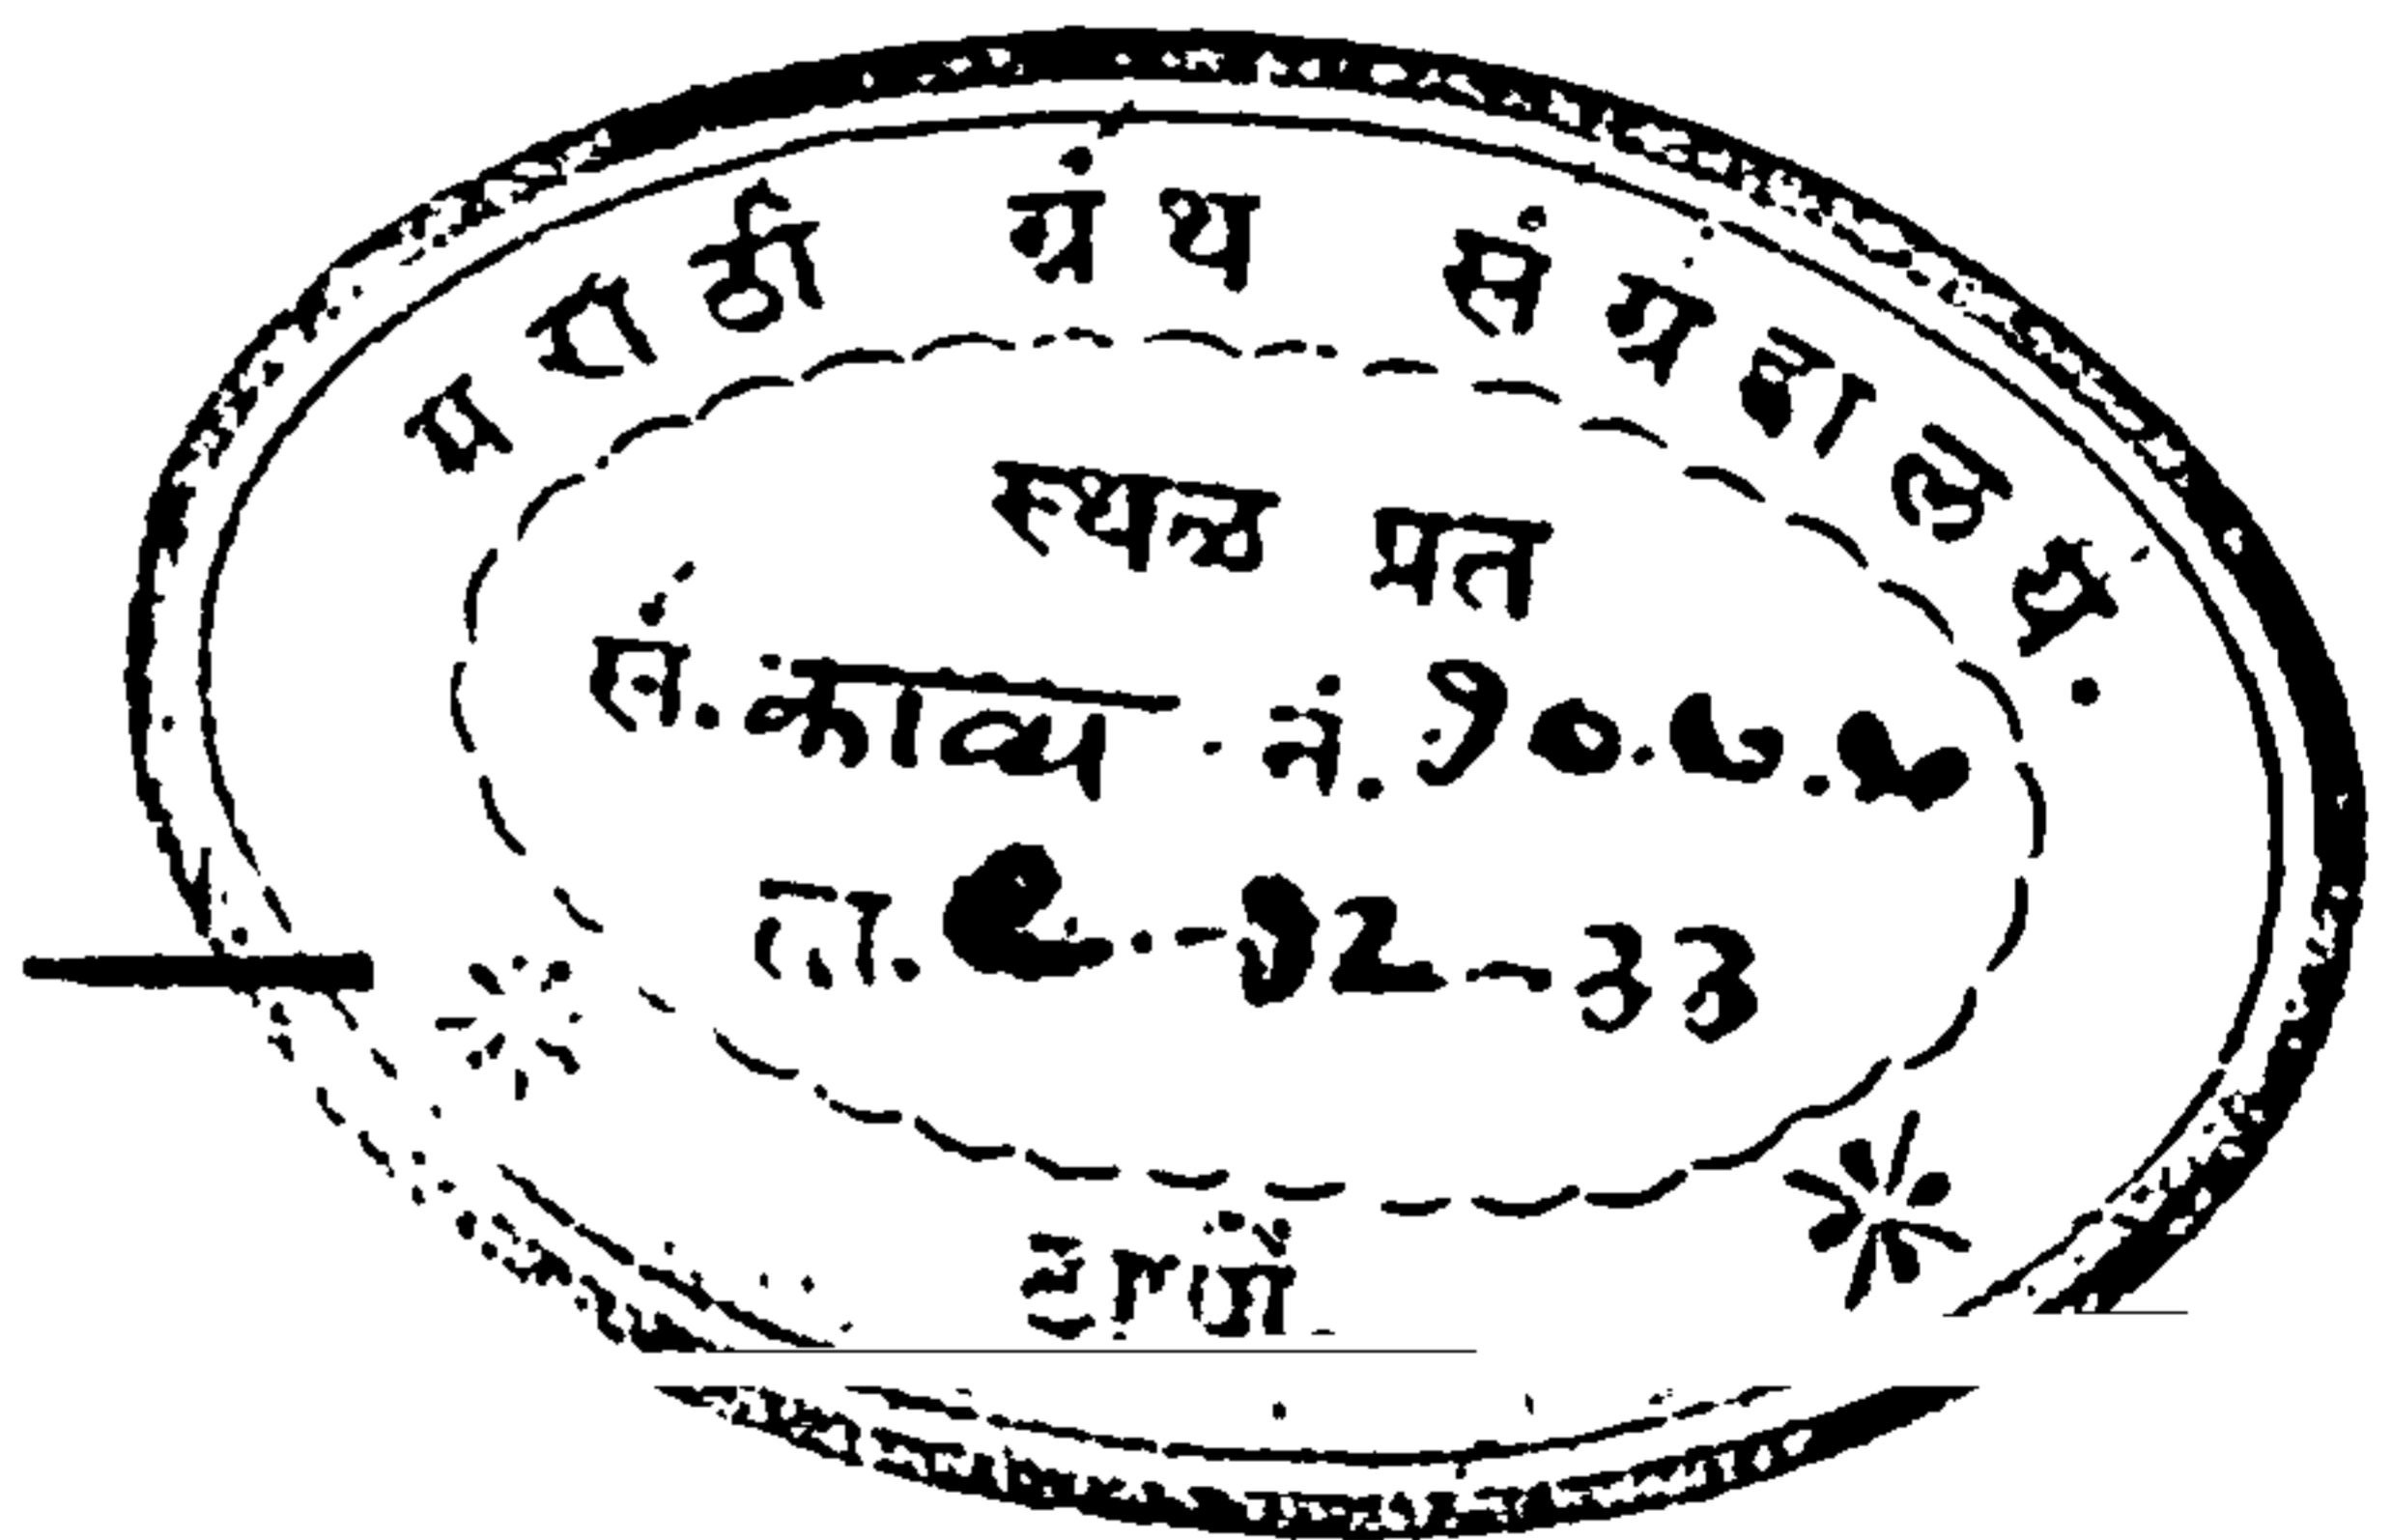 मराठी ग्रंथ संग्रहालय.
स्थळ प्रत
सं. काव्य . नं. १०.७.
ता. ९.-१२-३३
ठाणें.